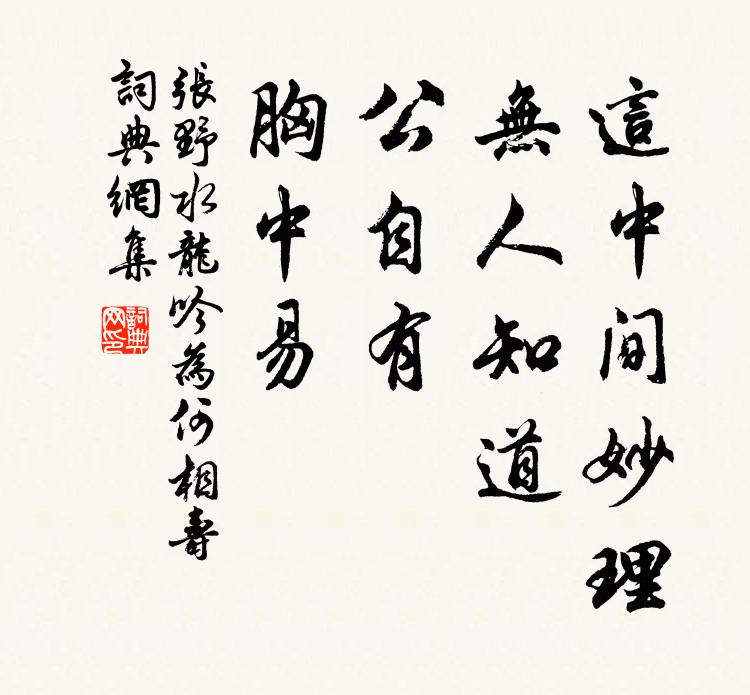 這中間妙理
無人知道
公自有
胸中易
張野水龍吟為何相壽
詞典網集
詞典网印